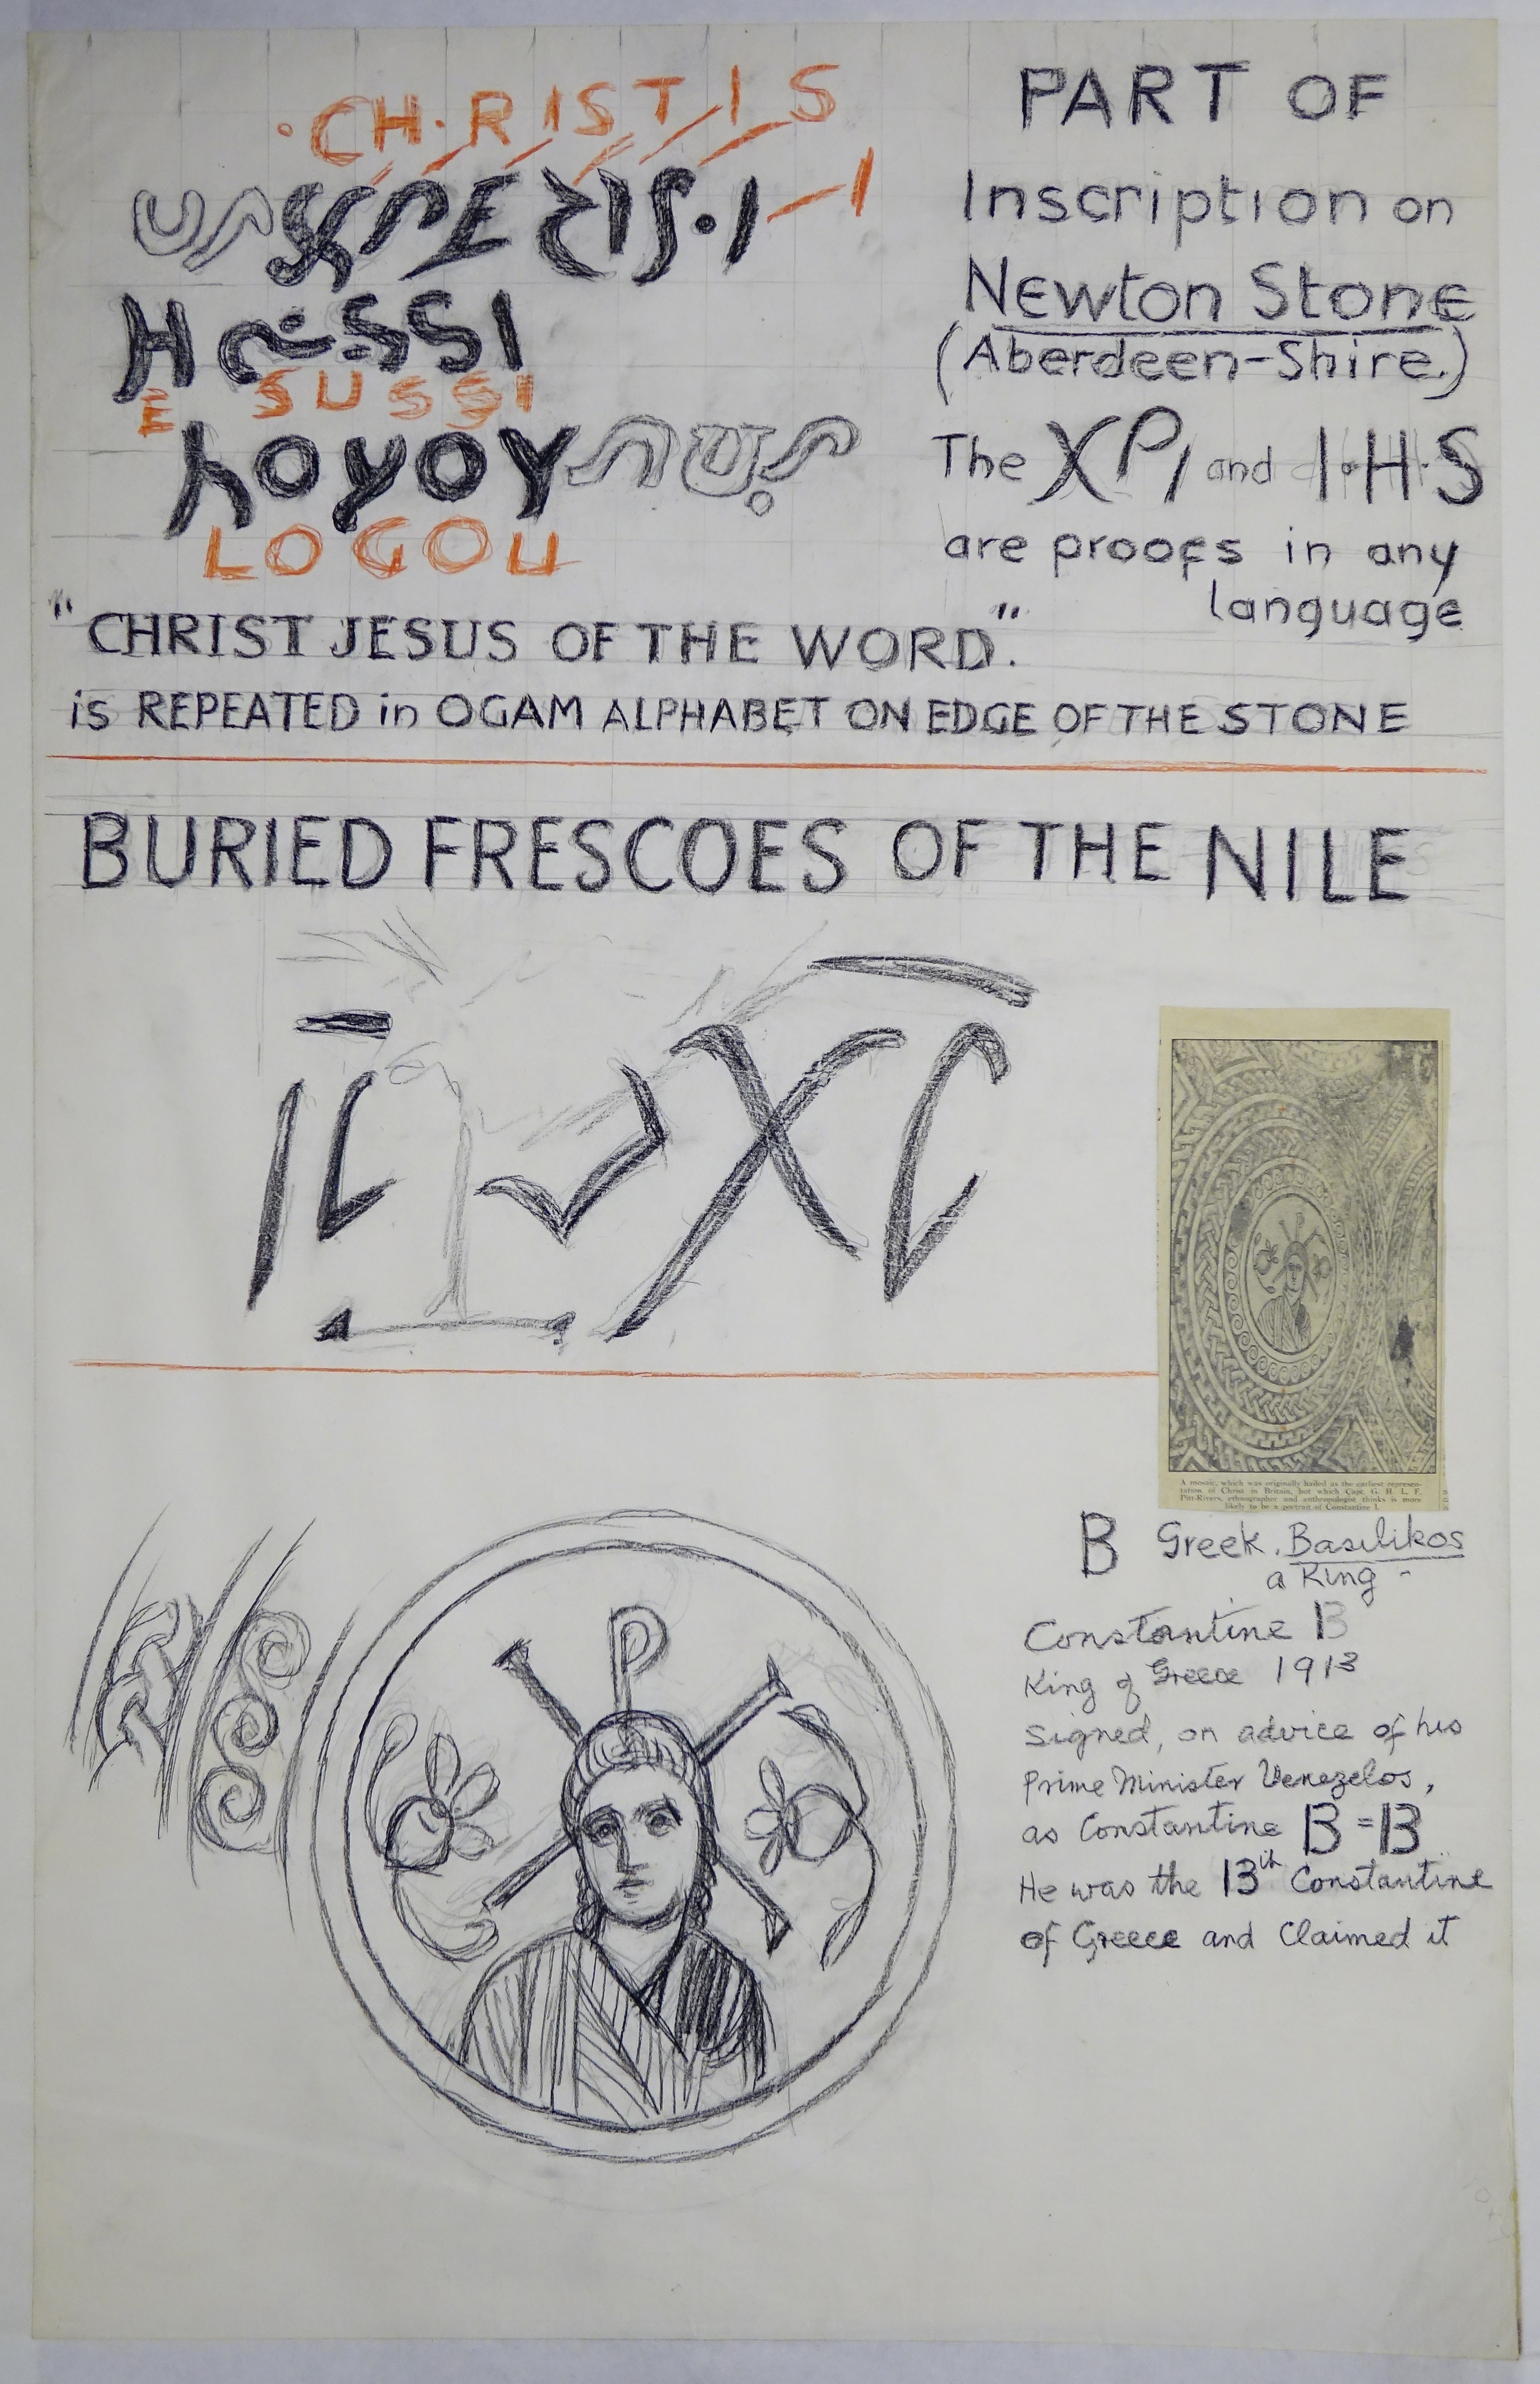 CH.RISTIS
I
E SUSSI
LOGOU
PART OF
Inscription on
Newton Stone
(Aberdeen-Shire.)
The XPI and I·H·S
are proofs in any
language
"CHRIST JESUS OF THE WORD."
is REPEATED in OGAM ALPHABET ON EDGE OF THE STONE
BURIED FRESCOES OF THE NILE
IC XC
A mosaic, which was originally hailed as the earliest represen-
tation of Christ in Britain, but which Capt. G. H. L. F.
Pitt-Rivers, ethnographer and anthropologist thinks is more
likely to be a portrait of Constantine I.
B Greek. Basilikos
a King -
Constantine B
King of Greece 1913
signed, on advice of his
Prime Minister Venezelos,
as Constantine B = B
He was the 13th Constantine
of Greece and Claimed it
P